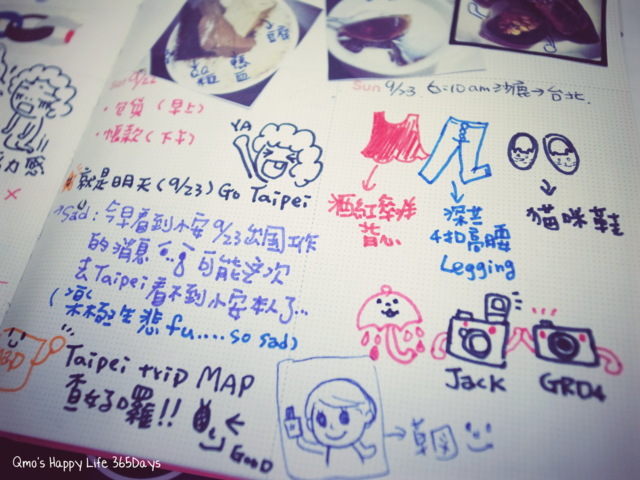 豆腐
Sun 9/22
力感
・包貨(早上)
・帳款(下午)
YA
就是明天(9/23) Go Taipei
sad:今早看到小安9/23出國工作
的消息 可能這次
去Taipei看不到小安本人了...
(樂極生悲fu.....so sad)
Taipei trip MAP
查好囉!!
GOOD
Sun 9/23 6:10am 台北.
酒紅
背心
深藍
4扣高腰
Legging
貓咪鞋
Jack
GRD4
草圖
Qmo's Happy Life 365Days